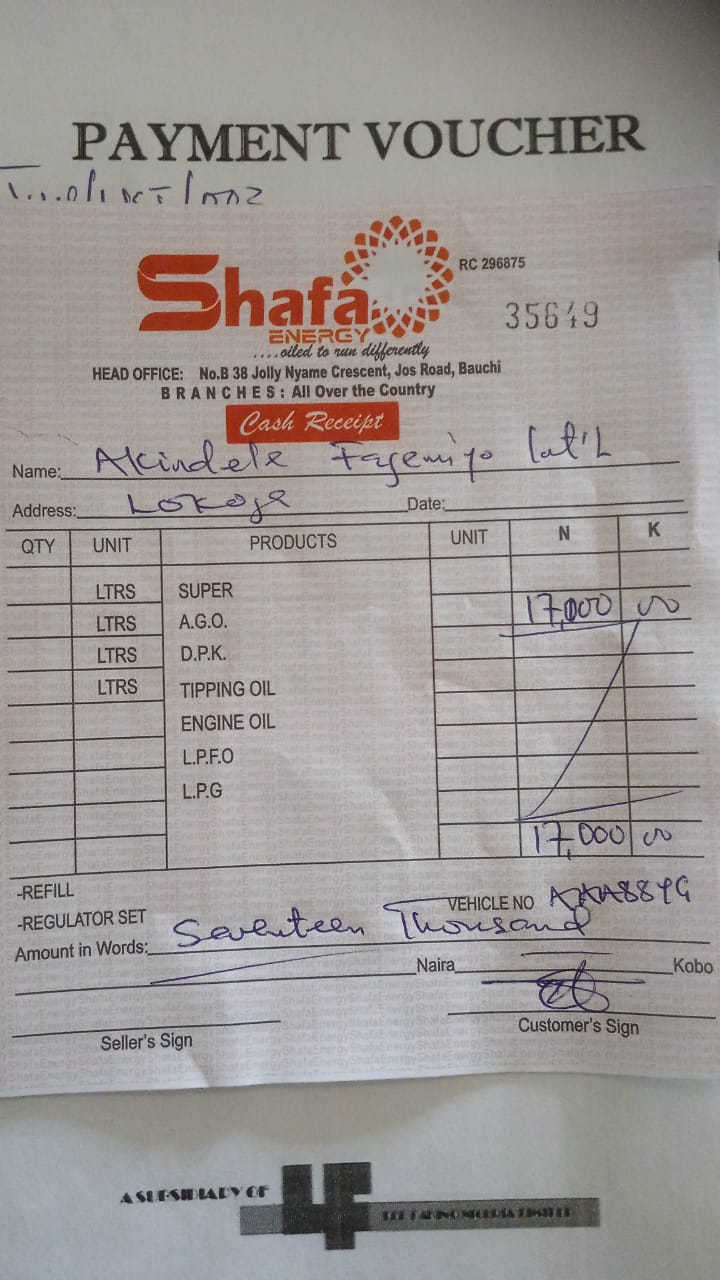 PAYMENT VOUCHER
Shafa
ENERGY
RC 296875
35649
....oiled to run differently
HEAD OFFICE: No.B 38 Jolly Nyame Crescent, Jos Road, Bauchi
BRANCHES: All Over the Country
Cash Receipt
Name: Akindele Fagemiyo Int'L
Address: Lokoja Date:
QTY UNIT PRODUCTS UNIT N K
LTRS SUPER 17,000 00
LTRS A.G.O.
LTRS D.P.K.
LTRS TIPPING OIL
ENGINE OIL
L.P.F.O
L.P.G
17,000 00
-REFILL
-REGULATOR SET VEHICLE NO
Amount in Words: Seventeen Thousand
Naira Kobo
Seller's Sign Customer's Sign
A SUBSIDIARY OF
NIGERIA LIMITED